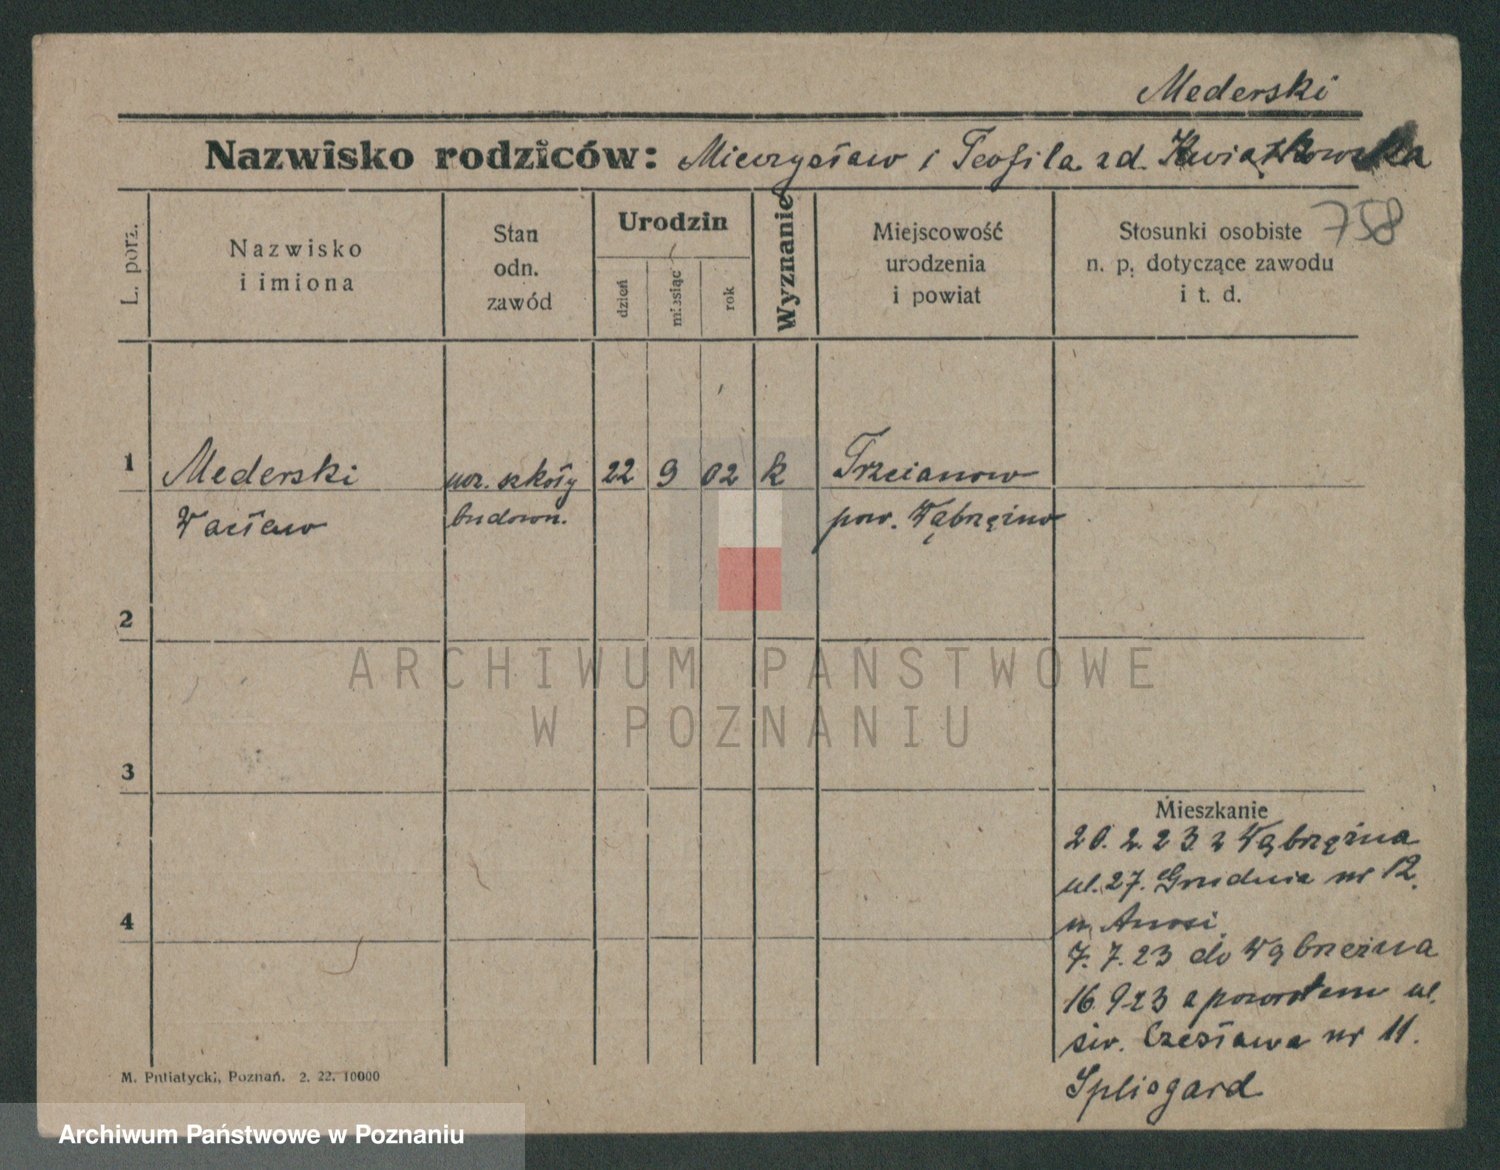 Mederski
Nazwisko rodziców: Mieczysław i Teofila zd. Kwiatkowska
758
L. porz.
Nazwisko
i imiona
Stan
odn.
zawód
Urodzin
dzień
miesiąc
rok
Wyznanie
Miejscowość
urodzenia
i powiat
Stosunki osobiste
n. p. dotyczące zawodu
i t. d.
1
Mederski
ucz. szkoły
22
9
02
k
Trzcianow
Wacław
budown.
pow. Wąbrzeźno
2
ARCHIWUM PAŃSTWOWE
W POZNANIU
3
Mieszkanie
20. 2. 23. z Wąbrzeźna
ul. 27. Grudnia nr 12.
4
7. 7. 23 do Wąbrzeźna
16 9 23 z powrotem ul.
św. Czesława nr 11.
Spliesgard
M. Putiatycki, Poznań. 2. 22. 10000
Archiwum Państwowe w Poznaniu